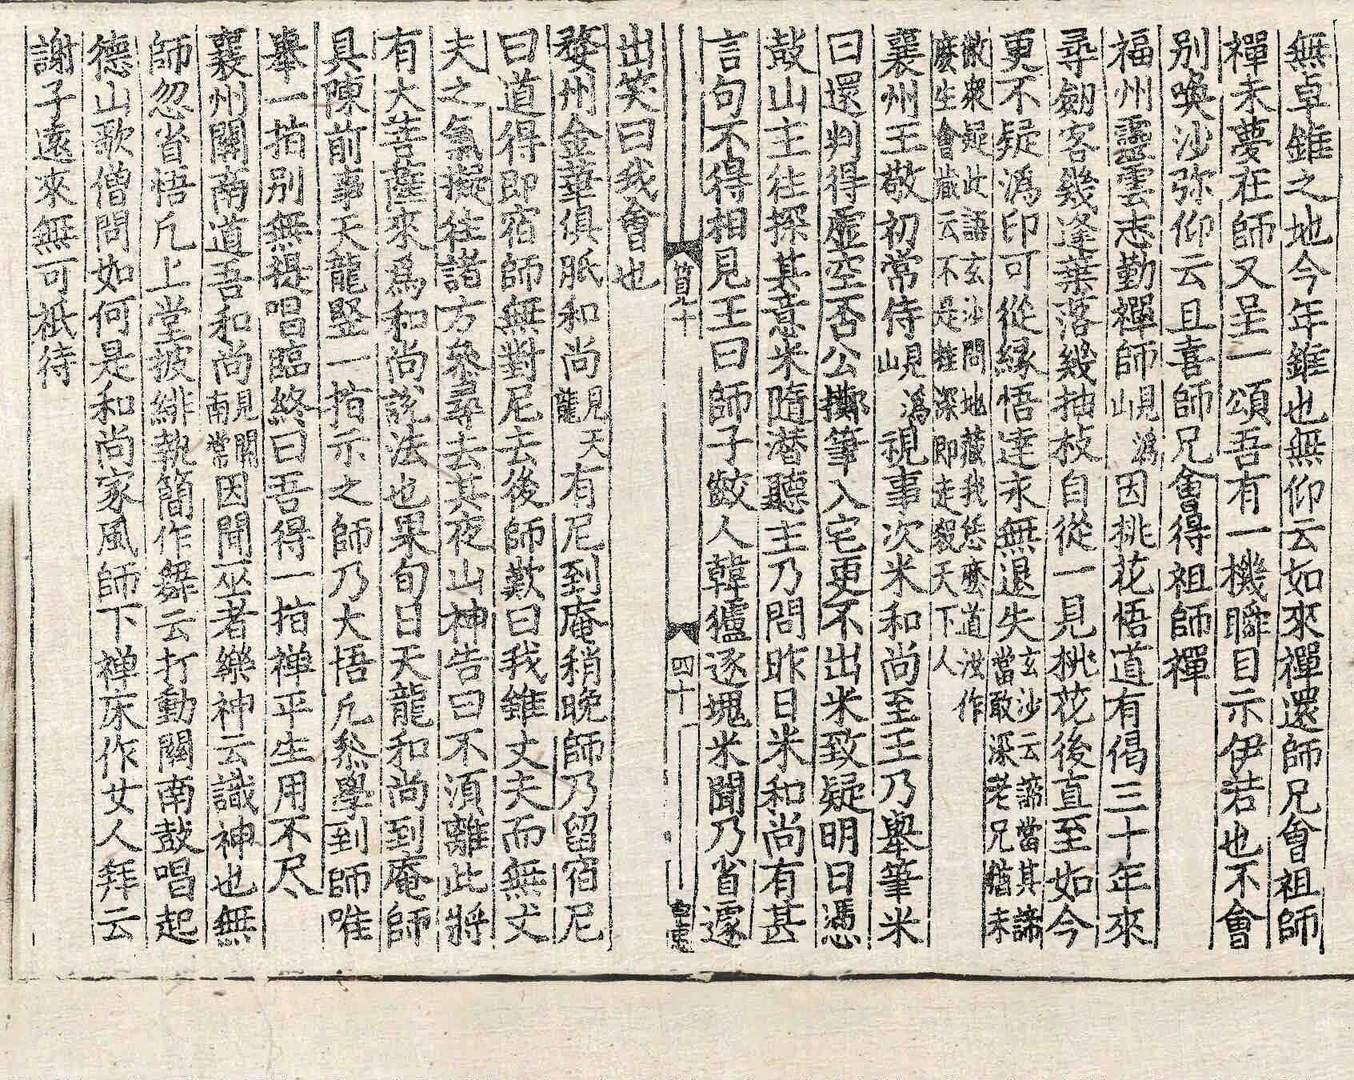 無卓錐之地今年錐也無仰云如來禪還師兄會祖師
禪未夢在師又呈一頌吾有一機瞬目示伊若也不會
別喚沙弥仰云且喜師兄會得祖師禪
福州靈雲志勤禪師見潙山因桃花悟道有偈三十年來
尋劒客幾逢葉落幾抽枝自從一見桃花後直至如今
更不疑潙印可從緣悟達永無退失玄沙云諦當甚諦當敢保老兄猶未
徹衆疑此語玄沙問地藏我恁麽道汝作
麽生會藏云不是桂琛即走殺天下人
襄州王敬初常侍見潙山視事次米和尚至王乃舉筆米
曰還判得虛空否公擲筆入宅更不出米致疑明日憑
鼓山主往探其意米隨潜聽主乃問昨日米和尚有甚
言句不得相見王曰師子齩人韓獹逐塊米聞乃省遽
四十一
出笑曰我會也
婺州金華俱胝和尚見天龍有尼到庵稍晚師乃留宿尼
曰道得即宿師無對尼去後師歎曰我雖丈夫而無丈
夫之氣擬往諸方叅尋去其夜山神告曰不須離此將
有大菩薩來爲和尚說法也果旬日天龍和尚到庵師
具陳前事天龍竪一指示之師乃大悟凡叅學到師唯
舉一指別無提唱臨終曰吾得一指禅平生用不尽
襄州關南道吾和尚見關南常因聞巫者樂神云識神也無
師忽省悟凡上堂披緋執簡作舞云打動關南鼓唱起
德山歌僧問如何是和尚家風師下禅床作女人拜云
謝子遠來無可祇待